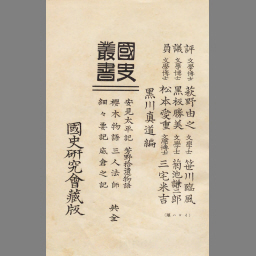 評 文學博士 萩野由之 文學士 笹川臨風
議 文學博士 黒板勝美 文學士 菊池謙二郎
員 文學博士 松本愛重 文學博士 三宅米吉
黒川真道編
國史
叢書
太平記 芳野拾遺物語
櫻木物語 三人法師
細々要記 底倉之記 共全
國史研究會藏版